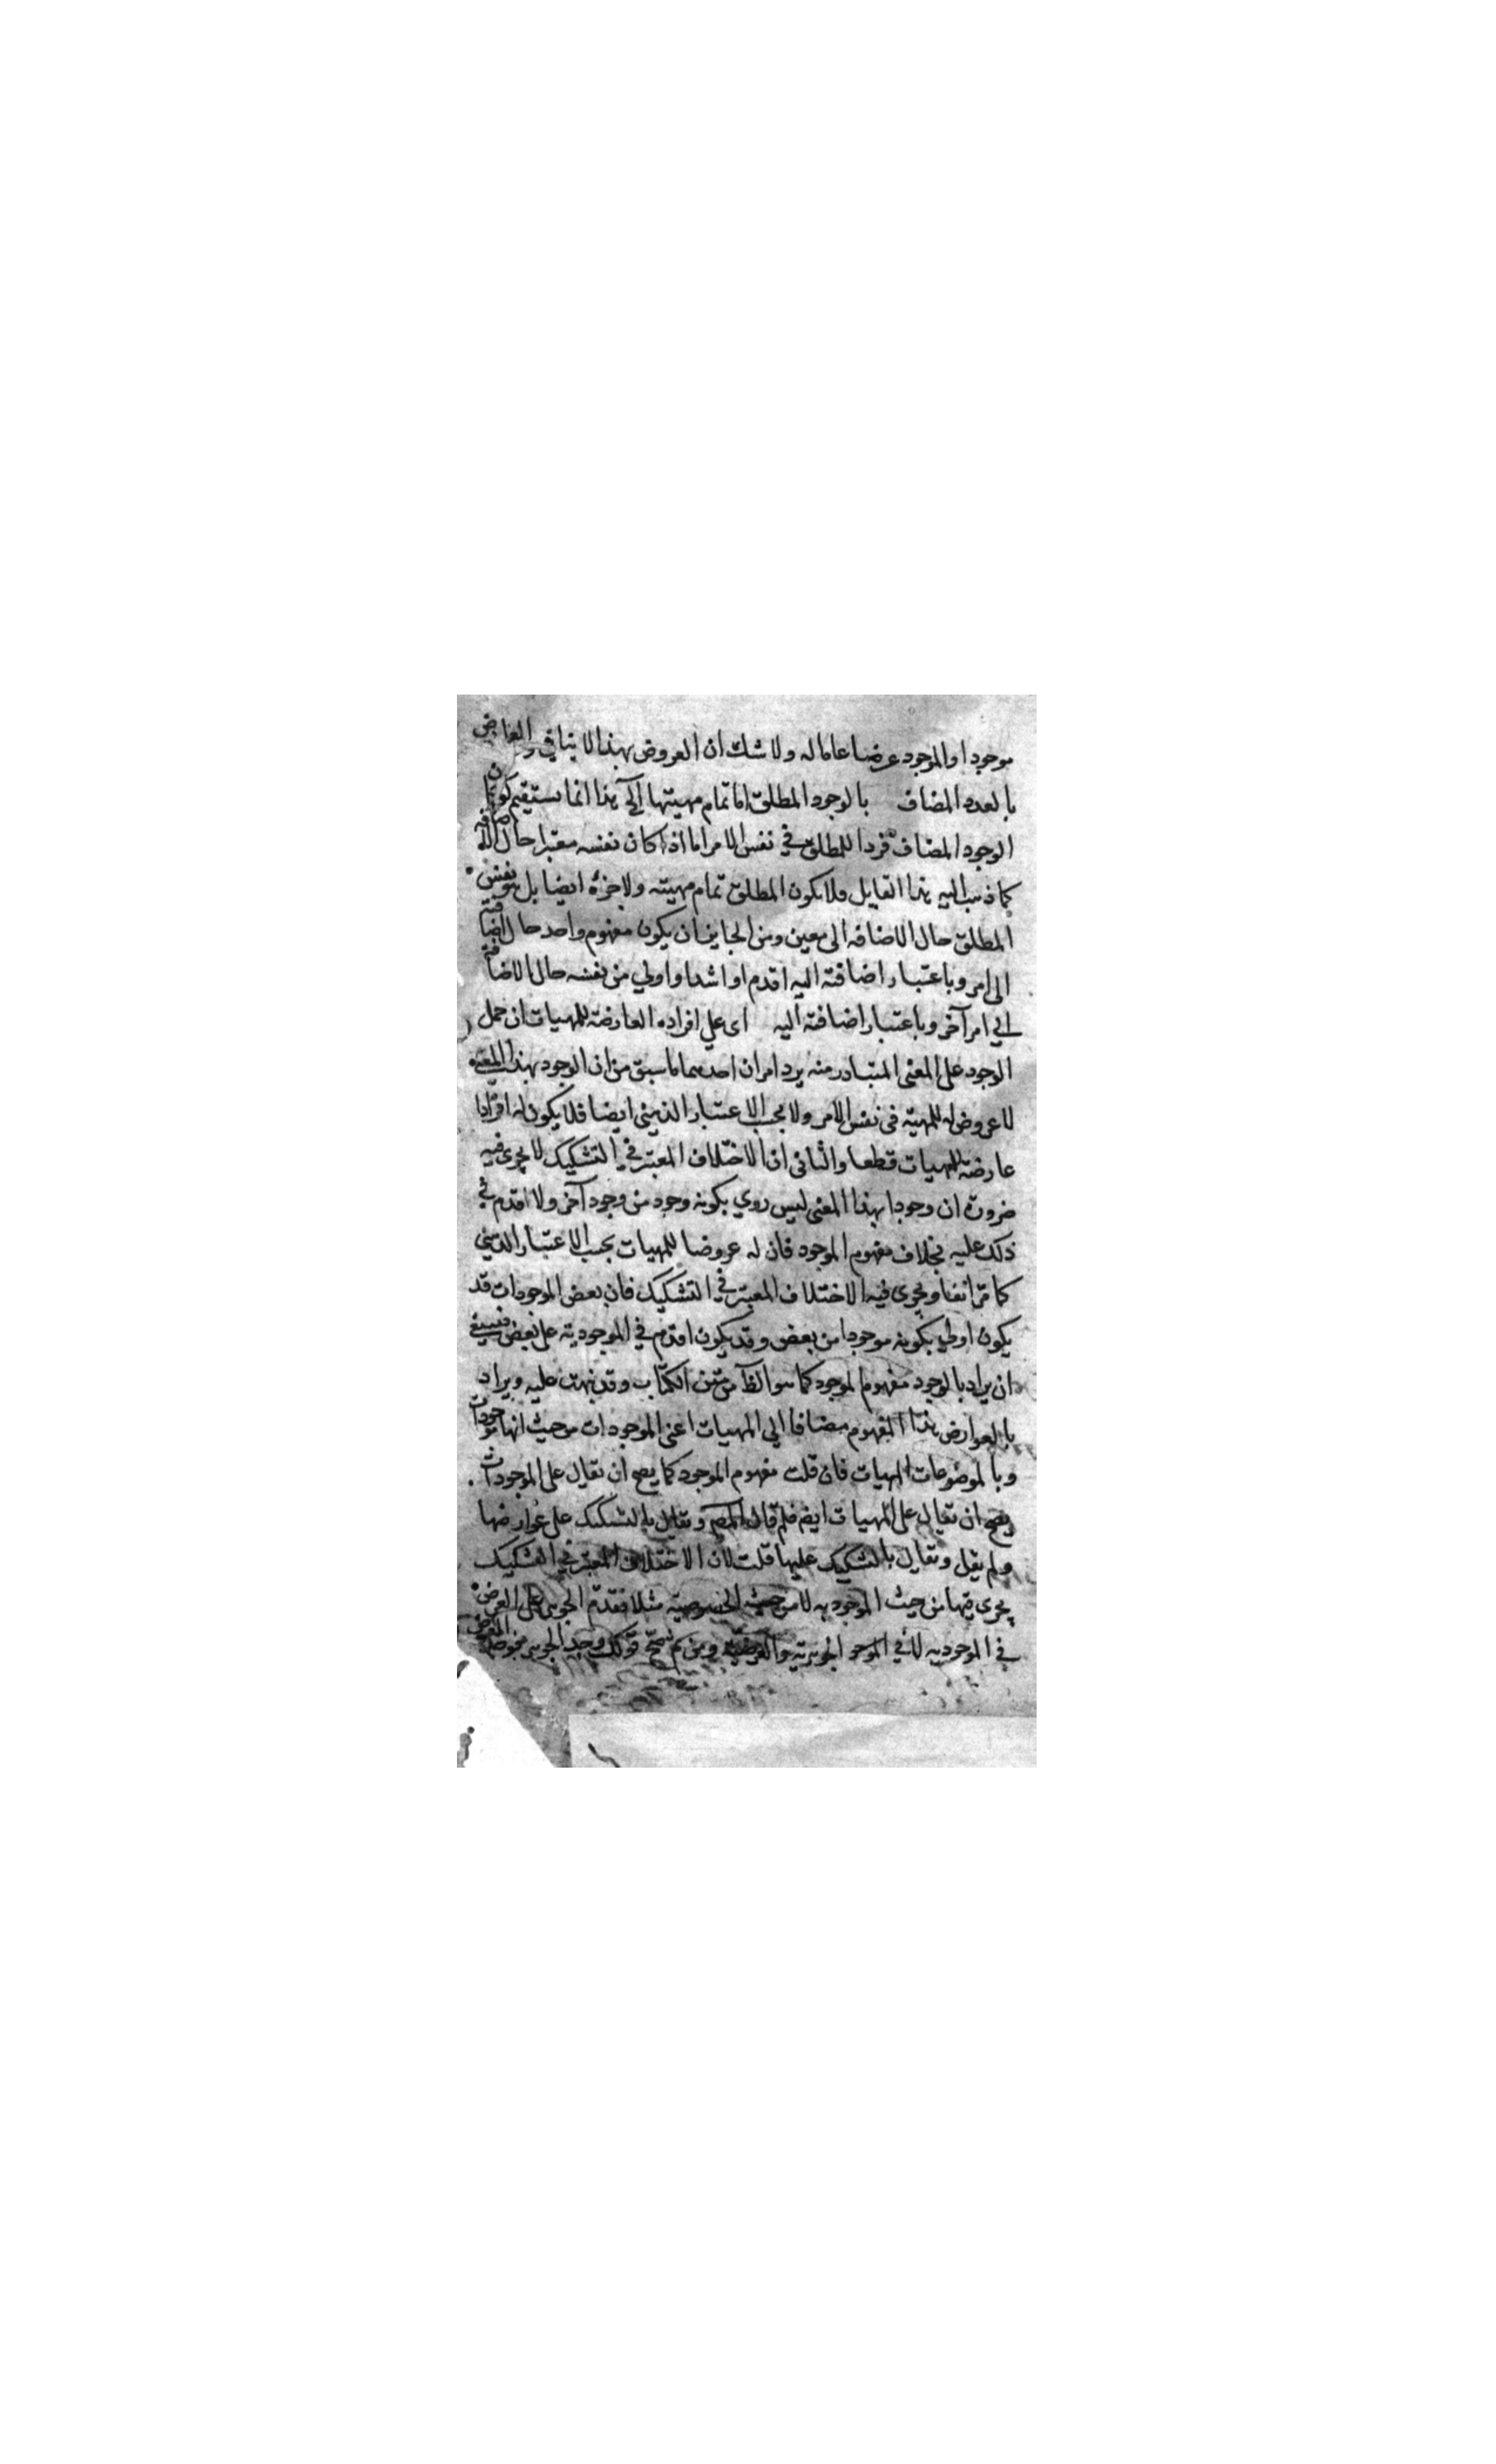 موجودا والموجود عرضا عاما له ولا شك ان العروض بهذا لا ينافي والعارض
بالعدد المضاف بالوجود المطلق اما تمام مهيتها الخ هذا انما يستقيم كون
الوجود المضاف فردا للمطلق في نفس الامر اما اذا كان نفسه معتبرا حال الاضافه
كما ذهب اليه هذا القايل فلا يكون المطلق تمام مهيته ولا جزؤه ايضا بل هو نفس
المطلق حال الاضافه الى معين ومن الجايز ان يكون مفهوم واحد حال اضافته
الى امر وباعتبار اضافته اليه اقدم او اشد او اولي من نفسه حال الاضافة
الي امر آخر وباعتبار اضافته اليه اي علي افراده العارضة للمهيات ان حمل
الوجود على المعنى المتبادر منه يرد امران احدهما ما سبق من ان الوجود بهذا المعنى
لا عروض له للمهية في نفس الامر ولا بحسب الاعتبار الذهني ايضا فلا يكون له افراد
عارضة للمهيات قطعا والثاني ان الاختلاف المعتبر في التشكيك لا يجري فيه
ضرورة ان وجودا بهذا المعنى ليس بكونه وجود من وجود آخر ولا اقدم في
ذلك عليه بخلاف مفهوم الموجود فان له عروضا للمهيات بحسب الاعتبار الذهني
كما مر انفا ويجري فيه الاختلاف المعتبر في التشكيك فان بعض الموجودات قد
يكون اولي بكونه موجودا من بعض وقد يكون اقدم في الموجودية على بعض فينبغي
ان يراد بالوجود مفهوم الموجود كما هو الظ من متن الكتاب وقد نبهت عليه ويراد
بالعوارض هذا المفهوم مضافا الي المهيات اعني الموجودات من حيث انها موجودات
وبالموضوعات المهيات فان قلت مفهوم الموجود كما يصح ان يقال على الموجودات
يصح ان يقال على المهيات ايضا فلم قال المص ويقال بالتشكيك على عوارضها
ولم يقل ويقال بالتشكيك عليها قلت لان الاختلاف المعتبر في التشكيك
يجري فيها من حيث الموجوديه لا من حيث الخصوصية مثلا تقدم الجوهر على العرض
في الموجوديه لا في الجوهرية والعرضية ومن ثم صح قولك وجد الجوهر فوجد العرض